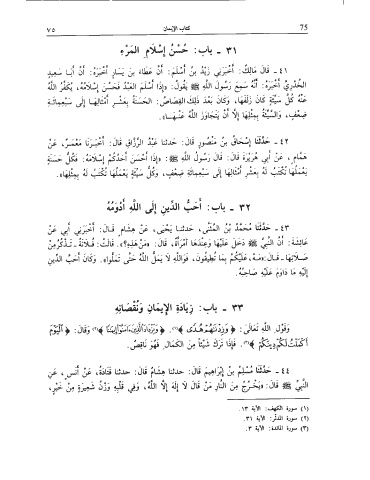 75 كتاب الإيمان ٧٥
٣١ - باب: حُسْنُ إِسْلَامِ المَرْءِ
٤١ - قَالَ مَالِكٌ: أَخْبَرَنِي زَيْدُ بْنُ أَسْلَمَ: أَنَّ عَطَاءَ بْنَ يَسَارٍ أَخْبَرَهُ: أَنَّ أَبَا سَعِيدٍ
الخُدْرِيَّ أَخْبَرَهُ: أَنَّهُ سَمِعَ رَسُولَ اللَّهِ ﷺ يَقُولُ: «إِذَا أَسْلَمَ العَبْدُ فَحَسُنَ إِسْلَامُهُ، يُكَفِّرُ اللَّهُ
عَنْهُ كُلَّ سَيِّئَةٍ كَانَ زَلَفَهَا، وَكَانَ بَعْدَ ذَلِكَ القِصَاصُ: الحَسَنَةُ بِعَشْرِ أَمْثَالِهَا إِلَى سَبْعِمِائَةِ
ضِعْفٍ، وَالسَّيِّئَةُ بِمِثْلِهَا إِلَّا أَنْ يَتَجَاوَزَ اللَّهُ عَنْهَا».
٤٢ - حَدَّثَنَا إِسْحَاقُ بْنُ مَنْصُورٍ قَالَ: حدثنا عَبْدُ الرَّزَّاقِ قَالَ: أَخْبَرَنَا مَعْمَرٌ، عَنْ
هَمَّامٍ، عَنْ أَبِي هُرَيْرَةَ قَالَ: قَالَ رَسُولُ اللَّهِ ﷺ: «إِذَا أَحْسَنَ أَحَدُكُمْ إِسْلَامَهُ: فَكُلُّ حَسَنَةٍ
يَعْمَلُهَا تُكْتَبُ لَهُ بِعَشْرِ أَمْثَالِهَا إِلَى سَبْعِمِائَةِ ضِعْفٍ، وَكُلُّ سَيِّئَةٍ يَعْمَلُهَا تُكْتَبُ لَهُ بِمِثْلِهَا».
٣٢ - باب: أَحَبُّ الدِّينِ إِلَى اللَّهِ أَدْوَمُهُ
٤٣ - حَدَّثَنَا مُحَمَّدُ بْنُ المُثَنَّى: حدثنا يَحْيَى، عَنْ هِشَامٍ قَالَ: أَخْبَرَنِي أَبِي عَنْ
عَائِشَةَ: أَنَّ النَّبِيَّ ﷺ دَخَلَ عَلَيْهَا وَعِنْدَهَا امْرَأَةٌ، قَالَ: «مَنْ هَذِهِ؟». قَالَتْ: فُلَانَةُ - تَذْكُرُ مِنْ
صَلَاتِهَا - قَالَ: «مَهْ، عَلَيْكُمْ بِمَا تُطِيقُونَ، فَوَاللَّهِ لَا يَمَلُّ اللَّهُ حَتَّى تَمَلُّوا». وَكَانَ أَحَبَّ الدِّينِ
إِلَيْهِ مَا دَاوَمَ عَلَيْهِ صَاحِبُهُ.
٣٣ - باب: زِيَادَةِ الإِيمَانِ وَنُقْصَانِهِ
وَقَوْلِ اللَّهِ تَعَالَى: ﴿وَزِدْنَاهُمْ هُدًى﴾(١). ﴿وَيَزْدَادَ الَّذِينَ آمَنُوا إِيمَانًا﴾(٢) وَقَالَ: ﴿الْيَوْمَ
أَكْمَلْتُ لَكُمْ دِينَكُمْ﴾(٣). فَإِذَا تَرَكَ شَيْئًا مِنَ الكَمَالِ، فَهُوَ نَاقِصٌ.
٤٤ - حَدَّثَنَا مُسْلِمُ بْنُ إِبْرَاهِيمَ قَالَ: حدثنا هِشَامٌ قَالَ: حدثنا قَتَادَةُ، عَنْ أَنَسٍ، عَنِ
النَّبِيِّ ﷺ قَالَ: «يَخْرُجُ مِنَ النَّارِ مَنْ قَالَ لَا إِلَهَ إِلَّا اللَّهُ، وَفِي قَلْبِهِ وَزْنُ شَعِيرَةٍ مِنْ خَيْرٍ،
(١) سورة الكهف: الآية ١٣.
(٢) سورة المدثر: الآية ٣١.
(٣) سورة المائدة: الآية ٣.